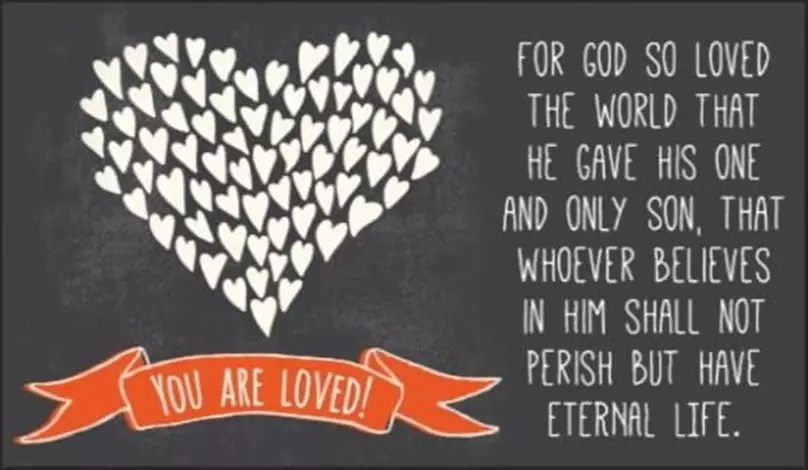 YOU ARE LOVED!
FOR GOD SO LOVED
THE WORLD THAT
HE GAVE HIS ONE
AND ONLY SON, THAT
WHOEVER BELIEVES
IN HIM SHALL NOT
PERISH BUT HAVE
ETERNAL LIFE.